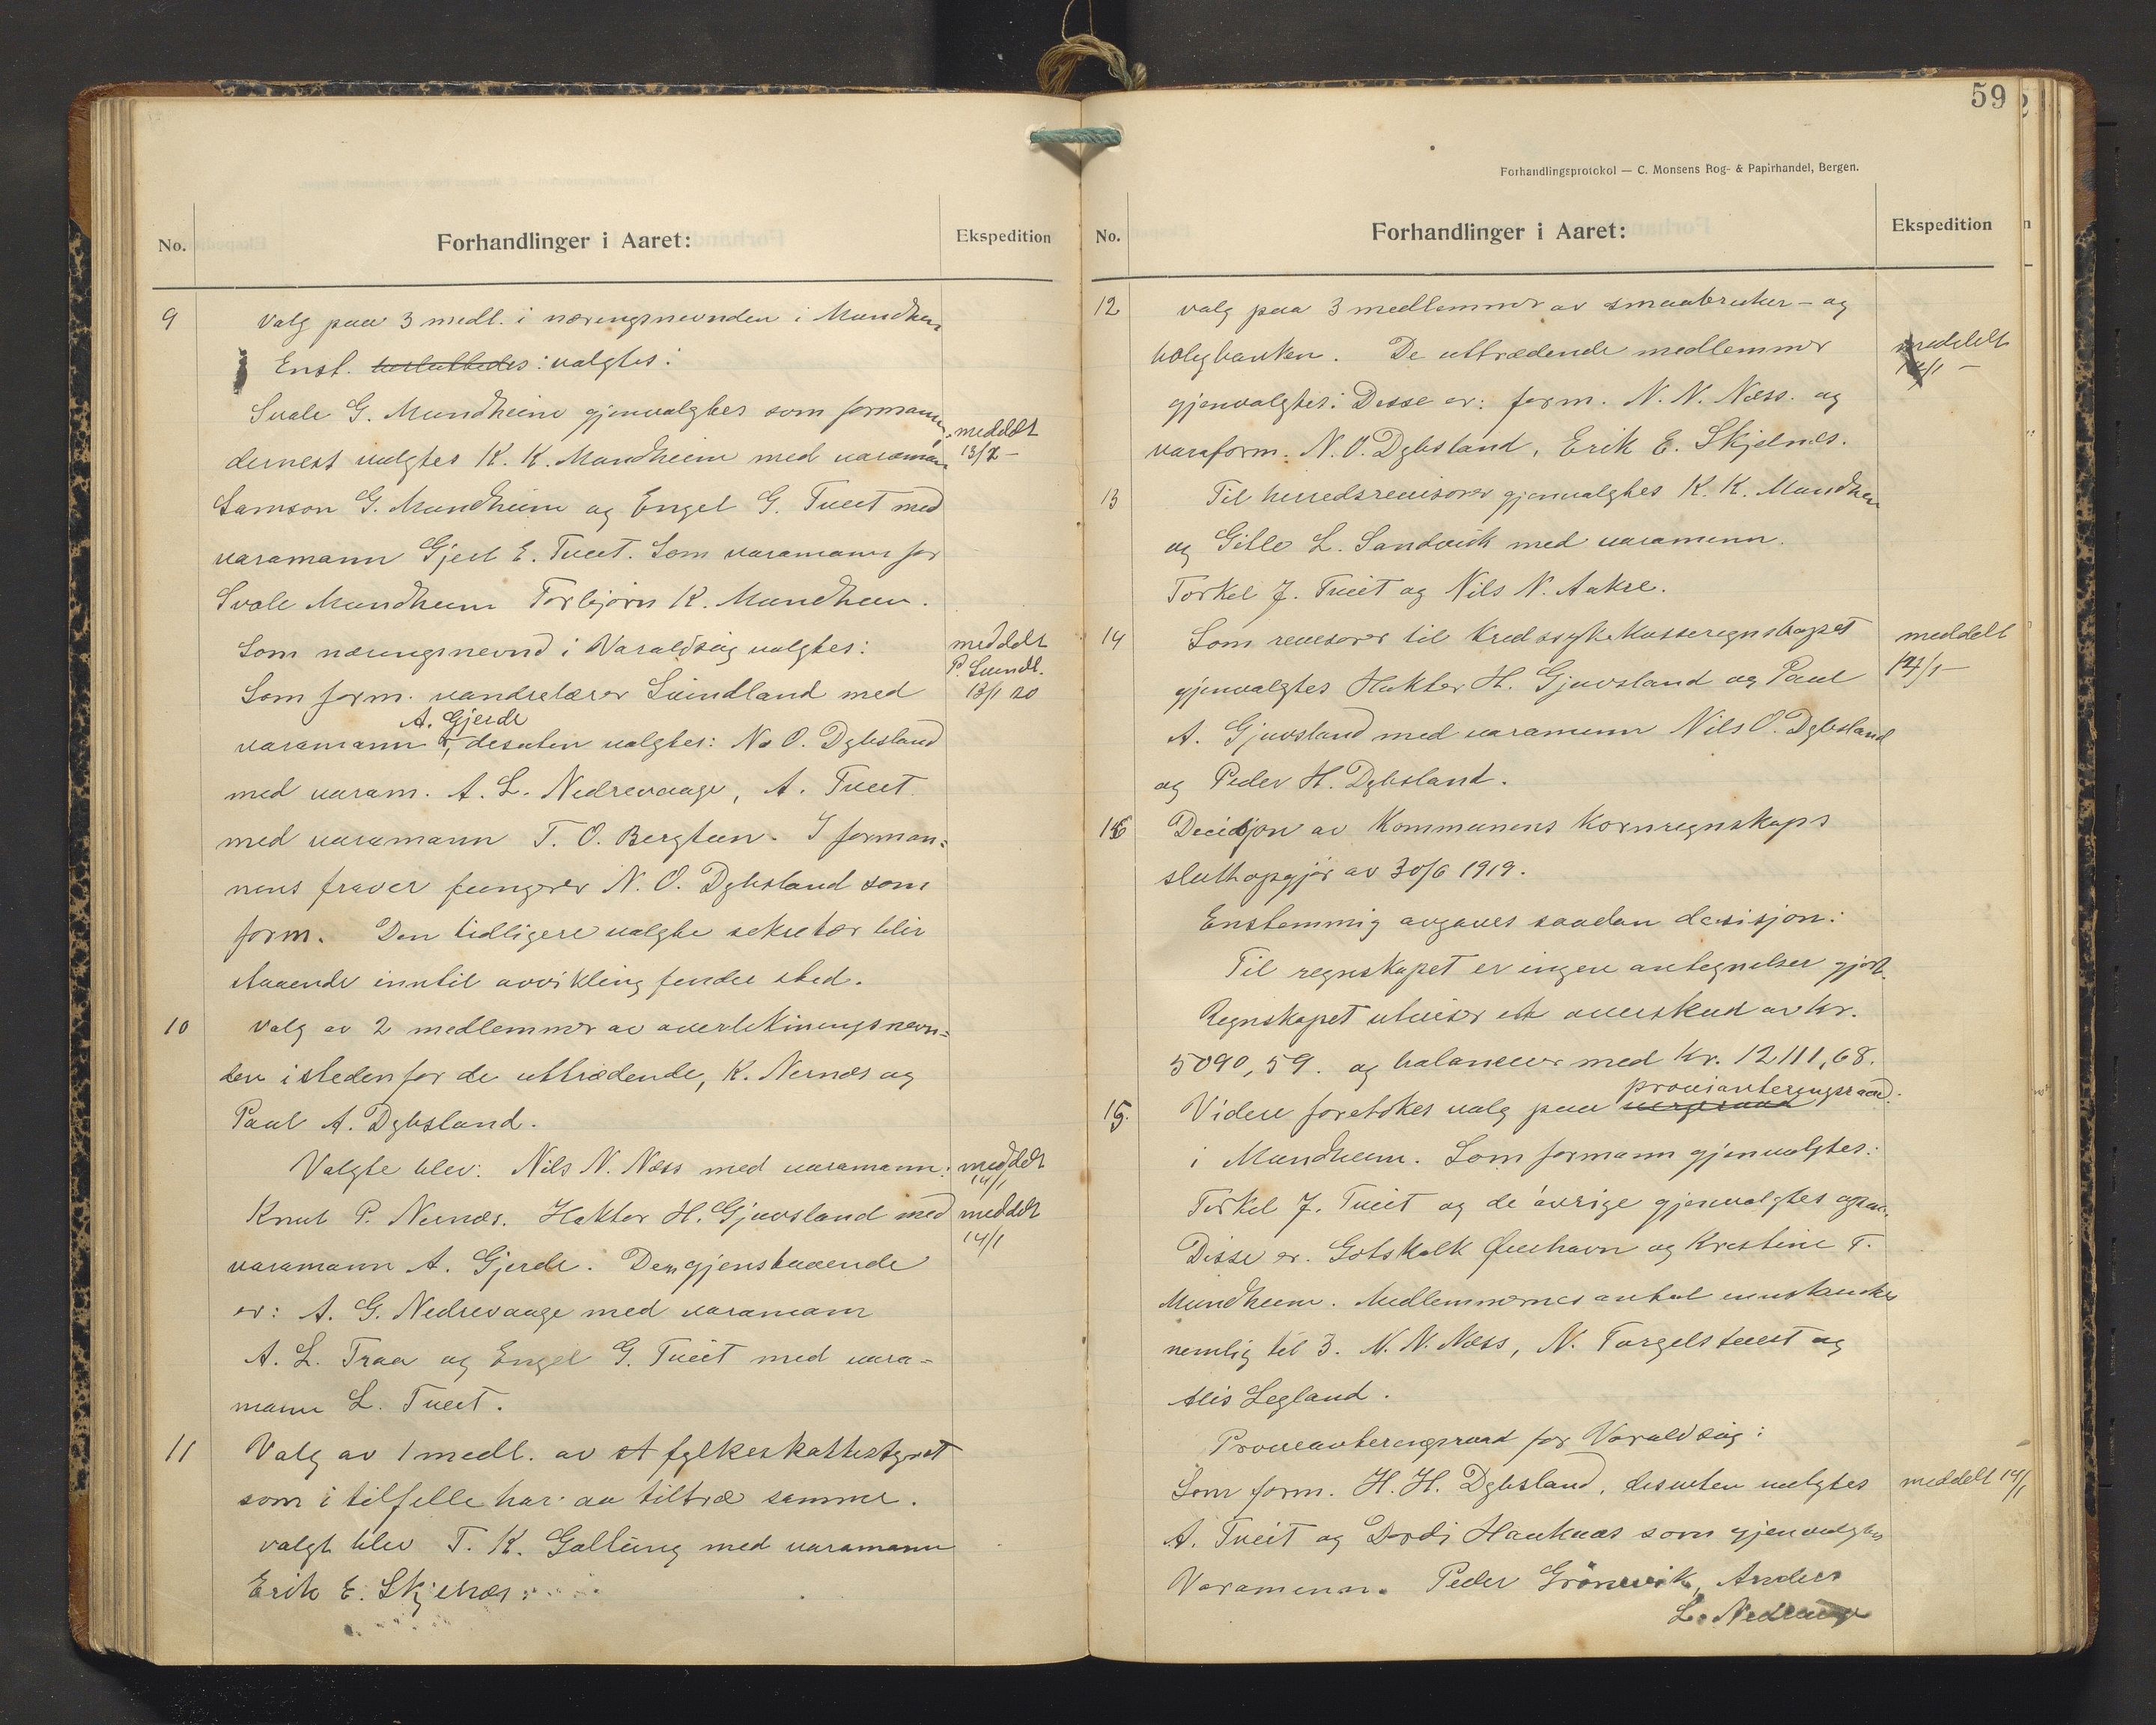 No.
Forhandlinger i Aaret:
Ekspedition
9
Valg paa 3 medl. i næringsnevnden i Mundhei
Enst. besluttedes: valgtes:
Svale G. Mundheim gjenvalgtes som formann,
meddelt
dernest valgtes K. K. Mundheim med varamann
13/1 –
Samson G. Mundheim og Engel G. Tveit med
varamann Gjert E. Tveit. Som varamann for
Svale Mundheim Torbjørn K. Mundheim.
Som næringsnevnd i Varaldsøy valgtes:
meddelt
P. Svindl.
Som form. vandrelærer Svindland med
13/1 20
A. Gjerde
varamann, desuten valgtes: N. O. Dybsland
med varam. A. L. Nedrevaage, A. Tveit
med varamann T. O. Bergtun. I forman-
nens fraver fungerer N. O. Dybsland som
form. Den tidligere valgte sekretær blir
staaende inntil avvikling finder sted.
10
Valg av 2 medlemmer av overlikningsnevn-
den istedenfor de uttrædende, K. Nernes og
Paul A. Dybsland.
Valgte blev: Nils N. Næss med varamann:
meddelt
14/1
Knut P. Nernes. Haktor H. Gjuvsland med
meddelt
14/1
varamann A. Gjerde. Den gjenstaaende
er: A. G. Nedrevaage med varamann
A. L. Traa og Engel G. Tveit med vara-
mann L. Tveit.
11
Valg av 1 medl. av st fylkesskattestyret
som i tilfelle har aa tiltræ samme.
valgt blev T. K. Galtung med varamann
Erik E. Skjelnæs.
59
Forhandlingsprotokol — C. Monsens Bog- & Papirhandel, Bergen.
No.
Forhandlinger i Aaret:
Ekspedition
12
valg paa 3 medlemmer av smaabruker- og
boligbanken. De uttrædende medlemmer
meddelt
14/1 –
gjenvalgtes: Disse er: form. N. N. Næss. og
varaform. N. O. Dybsland, Erik E. Skjelnes.
13
Til herredsrevisorer gjenvalgtes K. K. Mundheim
og Gitle L. Sandvik med varamenn.
Torkel J. Tveit og Nils N. Aakre.
14
Som revisorer til kredssykekasseregnskapet
meddelt
gjenvalgtes Haktor H. Gjuvsland og Paul
14/1 –
A. Gjuvsland med varamenn Nils O. Dybsland
og Peder H. Dybsland.
16
Decisjon av Kommunens kornregnskaps
sluttopgjør av 30/6 1919.
Enstemmig avgaves saadan desisjon:
Til regnskapet er ingen antegnelser gjort.
Regnskapet utviser et overskud av kr.
5090,59. og balancerer med kr. 12111,68.
provianteringsraad.
15.
Videre foretokes valg paa vergeraad
i Mundheim. Som formann gjenvalgtes:
Torkel J. Tveit og de øvrige gjenvalgtes
Disse er. Gotskalk Øvehavn og Kristine T.
Mundheim. Medlemmernes antal innskrenkes
nemlig til 3. N. N. Næss, N. Torgelstveit og
Alis Legland.
Provianteringsraad for Varaldsøy:
Som form. H. H. Dybsland, desuten valgtes
meddelt 14/1
A. Tveit og Dordi Hauknæs som gjenvalgtes
Varamenn. Peder Grønnvik, Anders
L. Nedrevaage